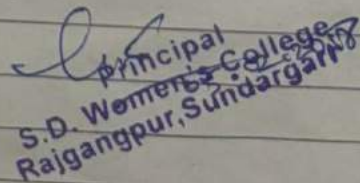 principal
S.D. Women's College
Rajgangpur, Sundargarh